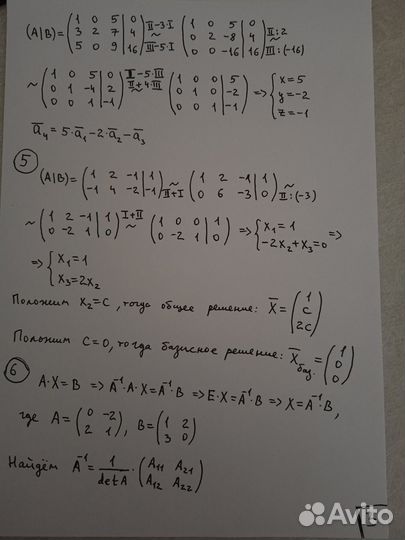 (A|B)= (1 0 5 | 0; 3 2 7 | 4; 5 0 9 | 16) II-3·I III-5·I ~ (1 0 5 | 0; 0 2 -8 | 4; 0 0 -16 | 16) II:2 III:(-16)
~ (1 0 5 | 0; 0 1 -4 | 2; 0 0 1 | -1) I-5·III II+4·III ~ (1 0 0 | 5; 0 1 0 | -2; 0 0 1 | -1) => { x=5 y=-2 z=-1
a̅₄ = 5·a̅₁-2·a̅₂-a̅₃
5
(A|B)= (1 2 -1 | 1; -1 4 -2 | -1) II+I ~ (1 2 -1 | 1; 0 6 -3 | 0) II:(-3)
~ (1 2 -1 | 1; 0 -2 1 | 0) I+II ~ (1 0 0 | 1; 0 -2 1 | 0) => { x₁=1 -2x₂+x₃=0 =>
=> { x₁=1 x₃=2x₂
Положим x₂=C, тогда общее решение: X̅ = (1; C; 2C)
Положим C=0, тогда базисное решение: X̅баз. = (1; 0; 0)
6
A·X=B => A⁻¹·A·X=A⁻¹·B => E·X=A⁻¹·B => X=A⁻¹·B,
где A= (0 -2; 2 1), B= (1 2; 3 0)
Найдём A⁻¹= 1/detA · (A₁₁ A₂₁; A₁₂ A₂₂)
Avito